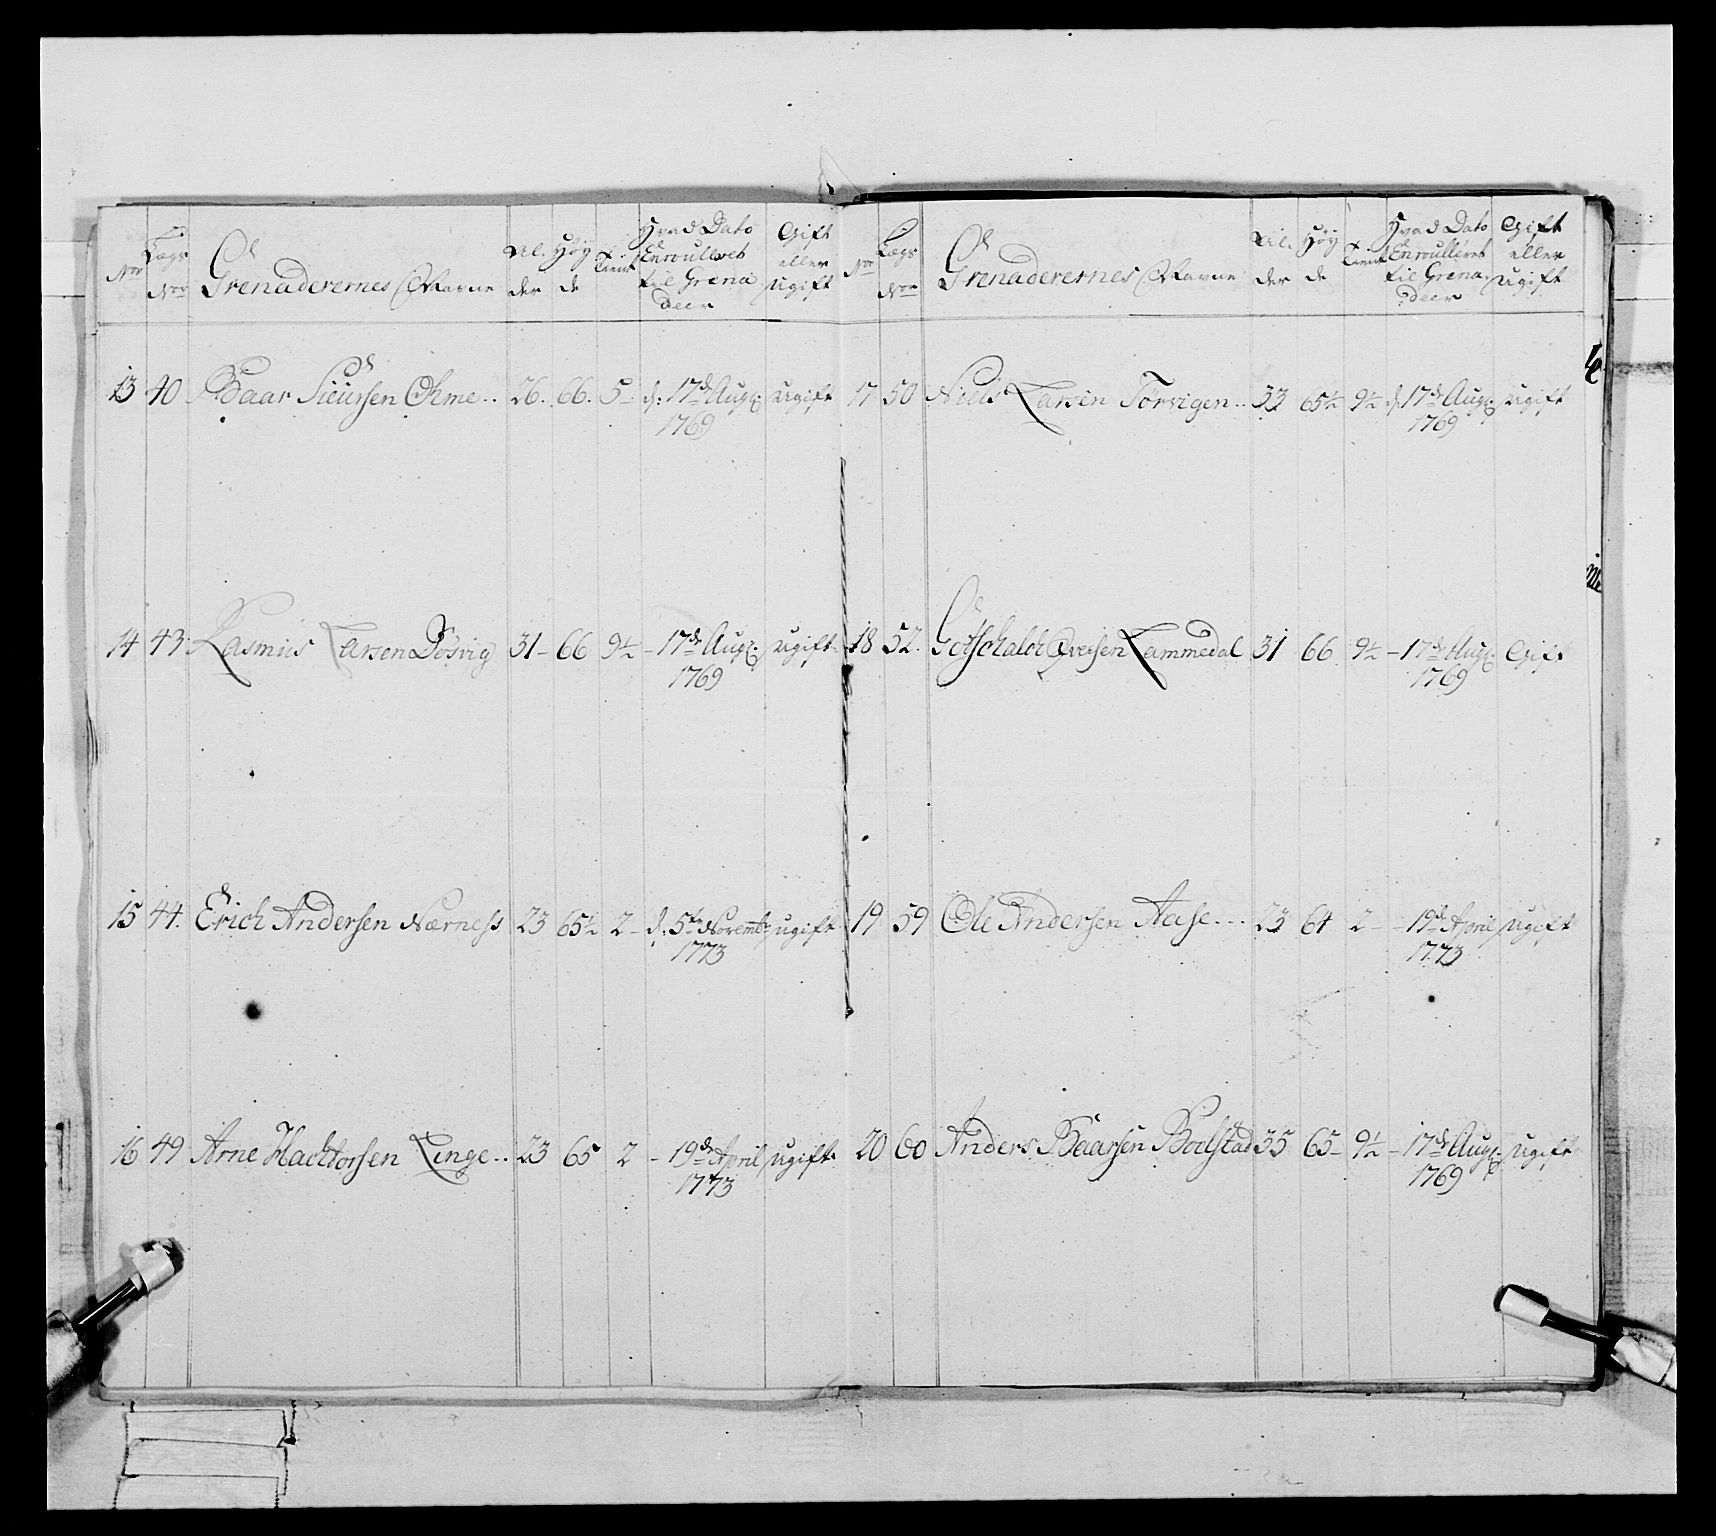 Nor Lægs Nor Grenaderernes Navne Al. der Høy de Tient Hvad Dato Enroulleret til Grena deer Gift eller ugift
13 40 Baar Siursen Ohme.. 26. 66. 5 – d: 17de Aug: ugift
1769
14 43 Rasmus Larsen Døsvig 31 – 66 9½ – 17de Aug: ugift
1769
15 44. Erich Andersen Nærness 23 65½ 2 – d: 5te Novembr ugift
1773
16 49 Arne Hachtorsen Linge.. 23 65 2 – 19de April ugift
1773
Nor Lægs Nor Grenaderernes Navne Al. der Høy de Tient Hvad Dato Enroulleret til Grena deer Gift eller ugift
17 50 Niels Larsen Torvigen.. 33 65½ 9½ d: 17de Aug: ugift
1769
18 52. Gotschalch Iversen Lammedal 31 66 9½ – 17de Aug: Gift
1769
19 59 Ole Andersen Aase... 23 64 2 – 19de April ugift
1773
20 60 Anders Baarsen Bolstad 35 65 – 9½ – 17de Aug: ugift
1769